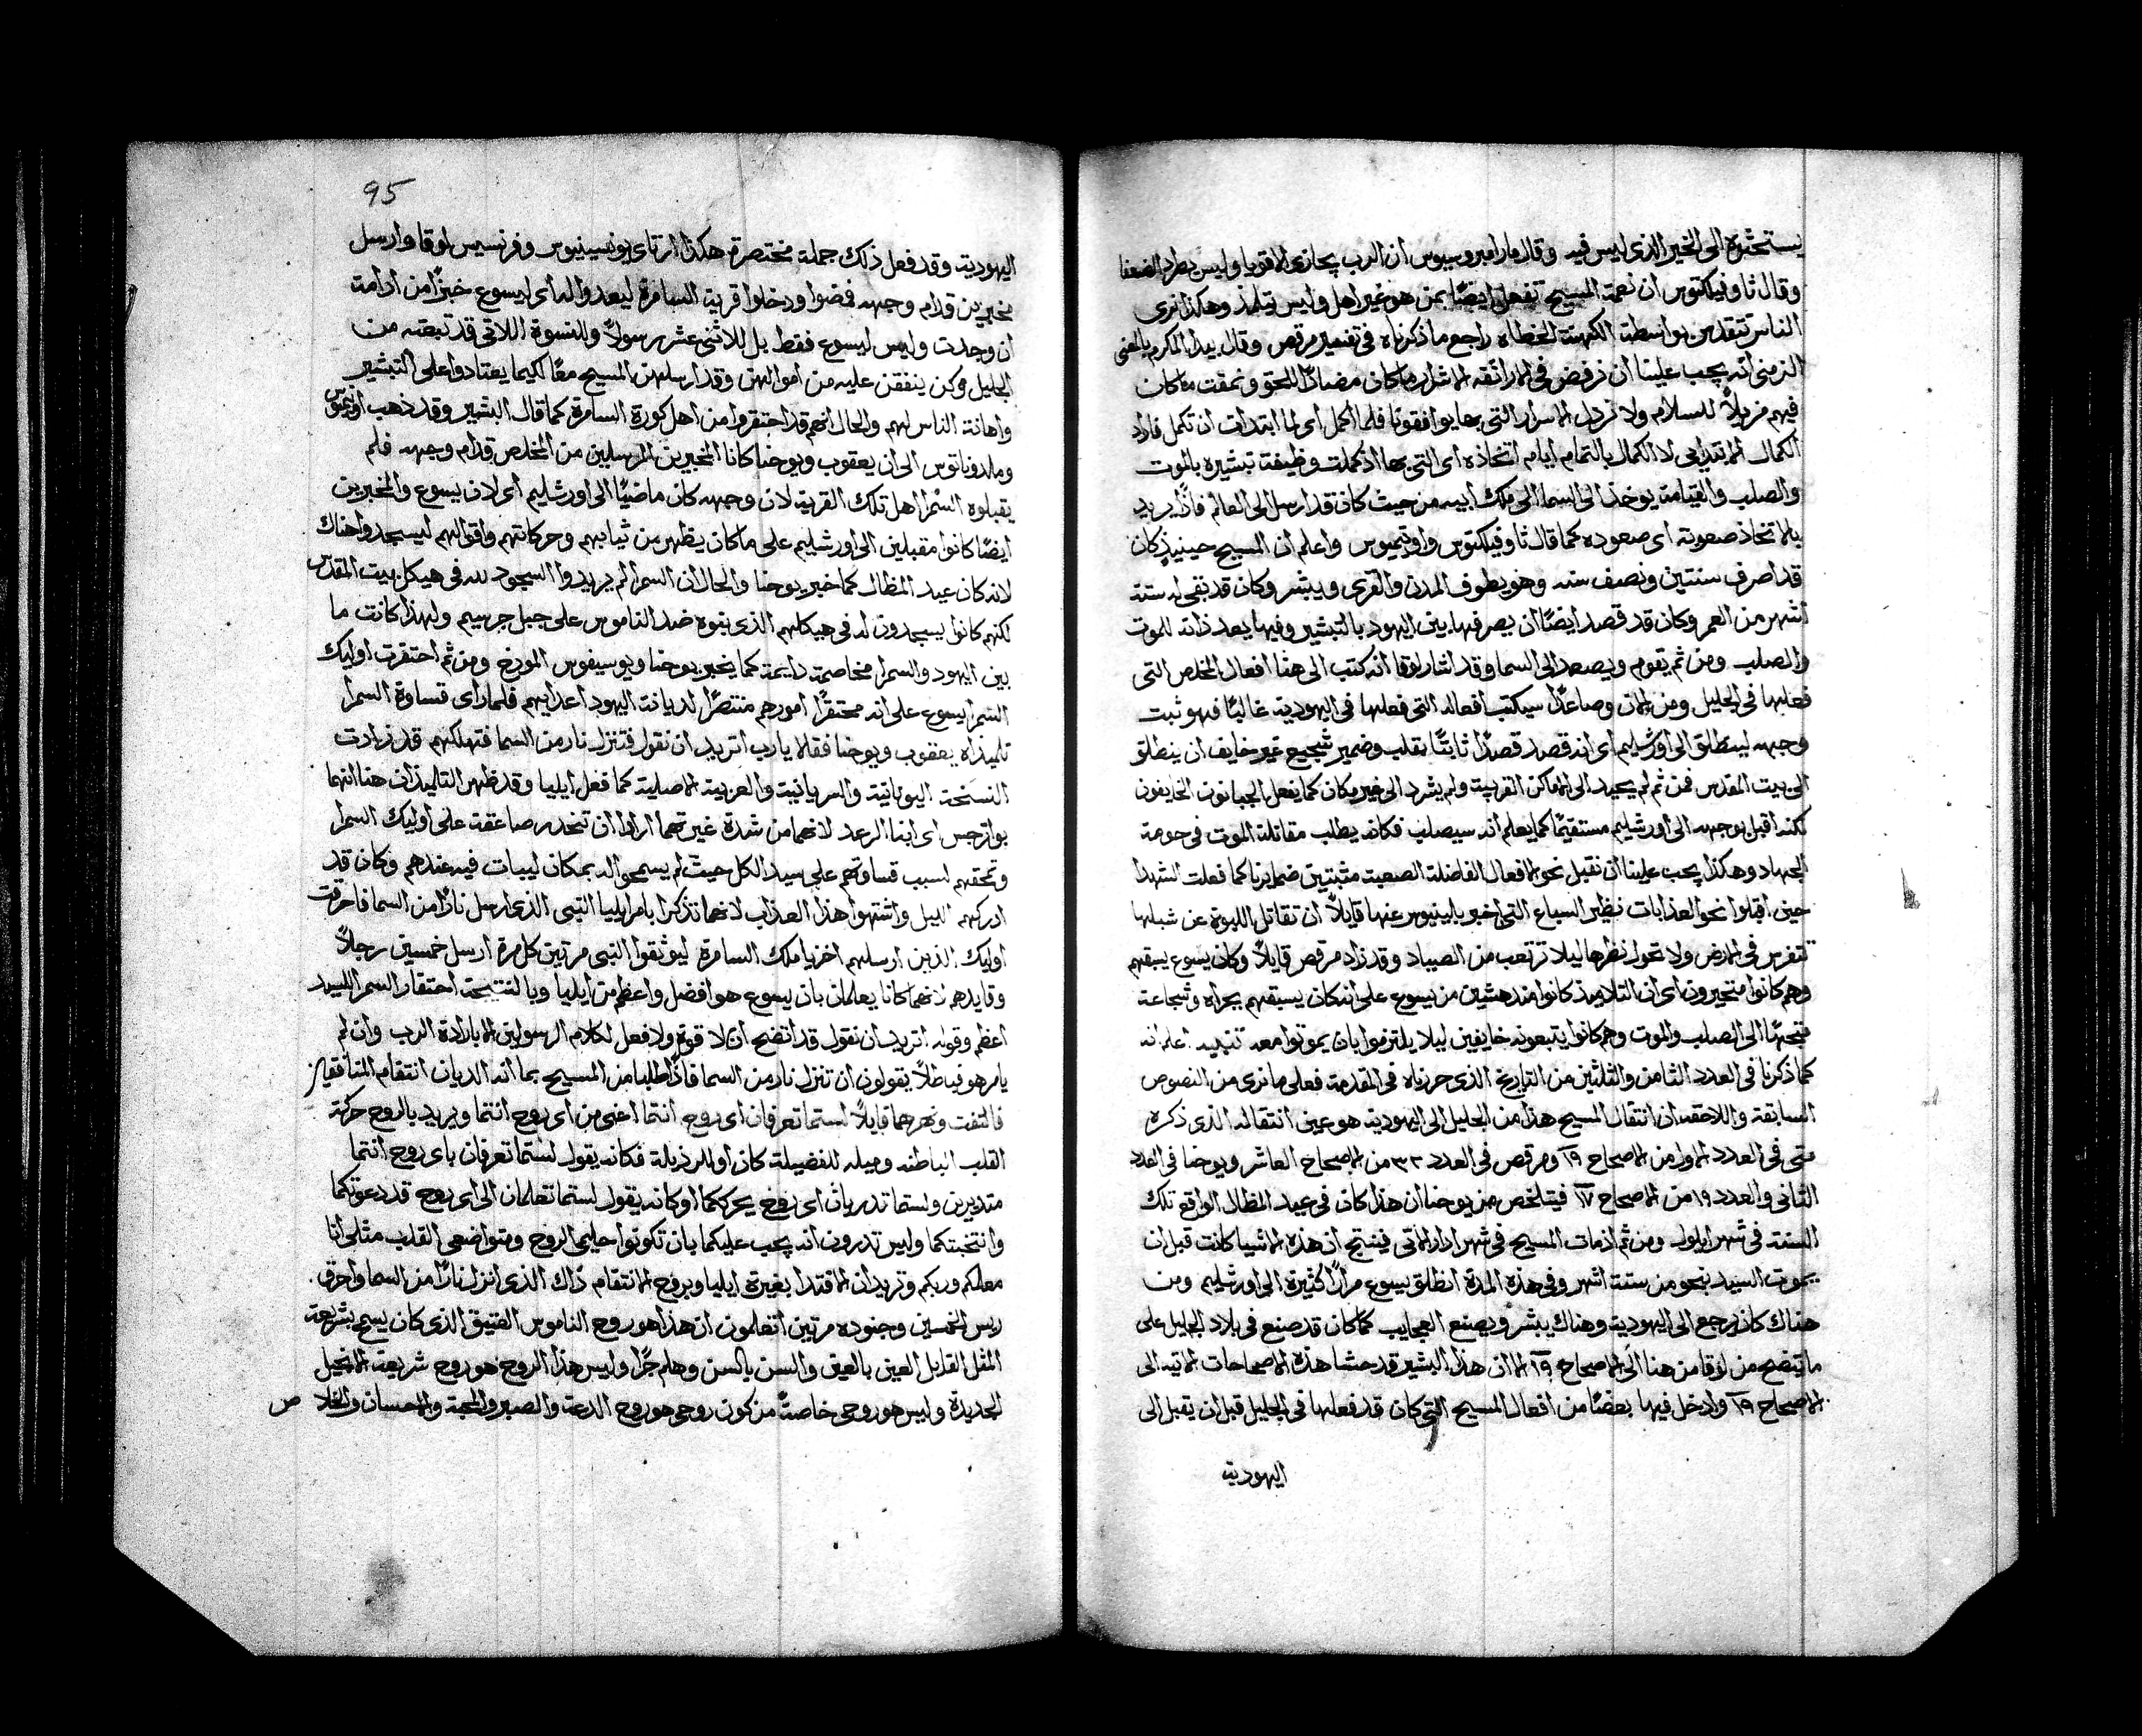 يستحثره الى الخير الذى ليس فيه وقال مار امبروسيوس ان الرب يجازى الاقويا وليس يطرد الضعفا
وقال ثاوفيلكتوس ان نعمة المسيح تفعل ايضًا بمن هو غير اهل وليس بتلميذ وهكذا نرى
الناس تتقدس بواسطة الكهنة الخطاه راجع ما ذكرناه فى تفسير مرقص وقال بيدا المكرم بالمعنى
الزمنى انه يجب علينا ان نرفض فى الاراتقه الاشرار ما كان مضادًا للحق ونمقت ما كان
فيهم مزيلاً للسلام ولا نرذل الاسرار التى بها يوافقونا فلما اكمل اى لما ابتدات ان تكمل فاراد
الكمال الابتدايى لا الكمال بالتمام ايام اتخاذه اى التى بها اذ كملت وظيفة تبشيره بالموت
والصلب والقيامة يوخذ الى السما الى ملك ابيه من حيث كان قد ارسل الى العالم فاذًا يريد
بالاتخاذ صعوبته اى صعوده كما قال ثاوفيلكتوس واوتيميوس واعلم ان المسيح حينيذٍ كان
قد صرف سنتين ونصف سنه وهو يطوف المدن والقرى ويبشر وكان قد بقى له ستة
اشهر من العمر وكان قد قصد ايضًا ان يصرفها بين اليهود بالتبشير وفيها يعد ذاته للموت
والصلب ومن ثم يقوم ويصعد الى السما وقد اشار لوقا انه كتب الى هنا افعال المخلص التى
فعلها فى الجليل ومن الان وصاعدًا سيكتب افعاله التى فعلها فى اليهودية غالبًا فهو ثبت
وجهه لينطلق الى اورشليم اى انه قصد قصدًا ثابتًا بقلب وضمير شجيع غير خايف ان ينطلق
الى بيت المقدس فمن ثم لم يحيد الى الاماكن القريبة ولم يشرد الى غير مكان كما يفعل الجبانون الخايفون
لكنه اقبل بوجهه الى اورشليم مستقيمًا كما يعلم انه سيصلب فكانه يطلب مقاتلة الموت فى حومة
الجهاد وهكذا يجب علينا ان نقبل نحو الافعال الفاضلة الصعبة مثبتين ضمايرنا كما فعلت الشهدا
حين اقبلوا نحو العذابات نظير السباع التى اخبر بالينيوس عنها قايلاً ان تقاتل اللبوة عن شبلها
تتفرس فى الارض ولا تحول نظرها ليلا ترتعب من الصياد وقد زاد مرقص قايلاً وكان يسوع يسبقهم
وهم كانوا متحيرون اى ان التلاميذ كانوا مندهشين من يسوع على انه كان يسبقهم بجراه وشجاعة
متجهًا الى الصلب والموت وهم كانوا يتبعونه خايفين ليلا يلتزموا بان يموتوا معه تنبيه اعلم انه
كما ذكرنا فى العدد الثامن والثلثين من التاريخ الذى حررناه فى المقدمة فعلى ما نرى من النصوص
السابقة واللاحقه ان انتقال المسيح هذا من الجليل الى اليهودية هو عين انتقاله الذى ذكره
متى فى العدد الاول من الاصحاح ١٩ ومرقص فى العدد ٣٢ من الاصحاح العاشر ويوحنا فى العدد
الثانى والعدد ١٩ من الاصحاح ١٧ فيتلخص من يوحنا ان هذا كان فى عيد المظال الواقع تلك
السنة فى شهر ايلول ومن ثم اذ مات المسيح فى شهر اذار الاتى فينتج ان هذه الاشيا كانت قبل ان
يموت السيد بنحو من ستة اشهر وفى هذه المدة انطلق يسوع مرارًا كثيرة الى اورشليم ومن
هناك كان يرجع الى اليهودية وهناك يبشر ويصنع العجايب كما كان قد صنع فى بلاد الجليل على
ما يتضح من لوقا من هنا الى الاصحاح ١٩ الا ان هذا البشير قد حشا هذه الاصحاحات الاتيه الى
الاصحاح ١٩ وادخل فيها بعضًا من افعال المسيح التى كان قد فعلها فى الجليل قبل ان يقبل الى
اليهودية
95
اليهودية وقد فعل ذلك جملة مختصرة هكذا ارتاى يونسينيوس وفرنسيس لوقا وارسل
مخبرين قدام وجهه فمضوا ودخلوا قرية السامرة ليعدوا له اى ليسوع خبزًا من ادامة
ان وجدت وليس ليسوع فقط بل للاثنى عشر رسولاً والنسوة اللاتى قد تبعنه من
الجليل وكن ينفقن عليه من اموالهن وقد ارسلهن المسيح معًا لكيما يعتادوا على التبشير
واهانة الناس لهم والحال انهم قد احتقروا من اهل كورة السامرة كما قال البشير وقد ذهب اوتيميوس
وملدوناتوس الى ان يعقوب ويوحنا كانا المخبرين المرسلين من المخلص قدام وجهه فلم
يقبلوه السمرا اهل تلك القرية لان وجهه كان ماضيًا الى اورشليم اى لان يسوع والمخبرين
ايضًا كانوا مقبلين الى اورشليم على ما كان يظهر من ثيابهم وحركاتهم واقوالهم ليسجدوا هناك
لانه كان عيد المظال كما خبر يوحنا والحال ان السمرا لم يريدوا السجود لله فى هيكل بيت المقدس
لكنهم كانوا يسجدون له فى هيكلهم الذى بنوه ضد الناموس على جبل جرسيم ولهذا كانت ما
بين اليهود والسمرا مخاصمة دايمة كما يخبر يوحنا ويوسيفوس المورخ ومن ثم احتقرت اوليك
السمرا يسوع على انه محتقرًا امورهم منتصرًا لديانة اليهود اعدايهم فلما راى قساوة السمرا
تلميذاه يعقوب ويوحنا فقالا يارب اتريد ان نقول فتنزل نار من السما فتهلكهم قد زادت
النسخة اليونانية والسريانية والعربية الاصلية كما فعل ايليا وقد ظهر التلميذان هنا انهما
بوانرجس اى ابنا الرعد لانهما من شدة غيرتهما ارادا ان تنحدر صاعقة على اوليك السمرا
وتحقهم لسبب قساوتهم على سيد الكل حيث لم يسمحوا له بمكان ليبات فيه عندهم وكان قد
ادركهم الليل واشتهوا هذا العذاب لانهما تذكرا بامر ايليا النبى الذى ارسل نارًا من السما فاحرقت
اوليك الذين ارسلهم اخزيا ملك السامرة ليوثقوا النبى مرتين كل مرة ارسل خمسين رجلاً
وقايدهم لانهما كانا يعلمان بان يسوع هو افضل واعظم من ايليا وبالنتيجة احتقار السمرا للسيد
اعظم وقوله اتريد ان نقول قد اتضح ان لا قوة ولا فعل لكلام الرسولين الا بارادة الرب وان لم
يامر هو فباطلاً يقولون ان تنزل نار من السما فاذًا طلبا من المسيح بما انه الديان انتقام المنافقين
فالتفت ونهرهما قايلاً لستما تعرفان اى روح انتما اعنى من اى روح انتما ويريد بالروح حركة
القلب الباطنه وميله للفضيلة كان او للرذيلة فكانه يقول لستما تعرفان باى روح انتما
متدبرين ولستما تدريان اى روح يحركما او كانه يقول لستما تعلمان الى اى روح قد دعوتكما
وانتخبتكما وليس تدرون انه يجب عليكما بان تكونوا حليمى الروح ومتواضعى القلب مثلى انا
معلمكم وربكم وتريدان الاقتدا بغيرة ايليا وبروح الانتقام ذاك الذى انزل نارًا من السما واحرق
ريس الخمسين وجنوده مرتين اتعلمون ان هذا هو روح الناموس العتيق الذى كان يسمح بشريعة
المثل القايل العين بالعين والسن بالسن وهلم جرًا وليس هذا الروح هو روح شريعة الانجيل
الجديدة وليس هو روحى خاصةً من كون روحى هو روح الدعة والصبر والمحبة والاحسان والخلاص